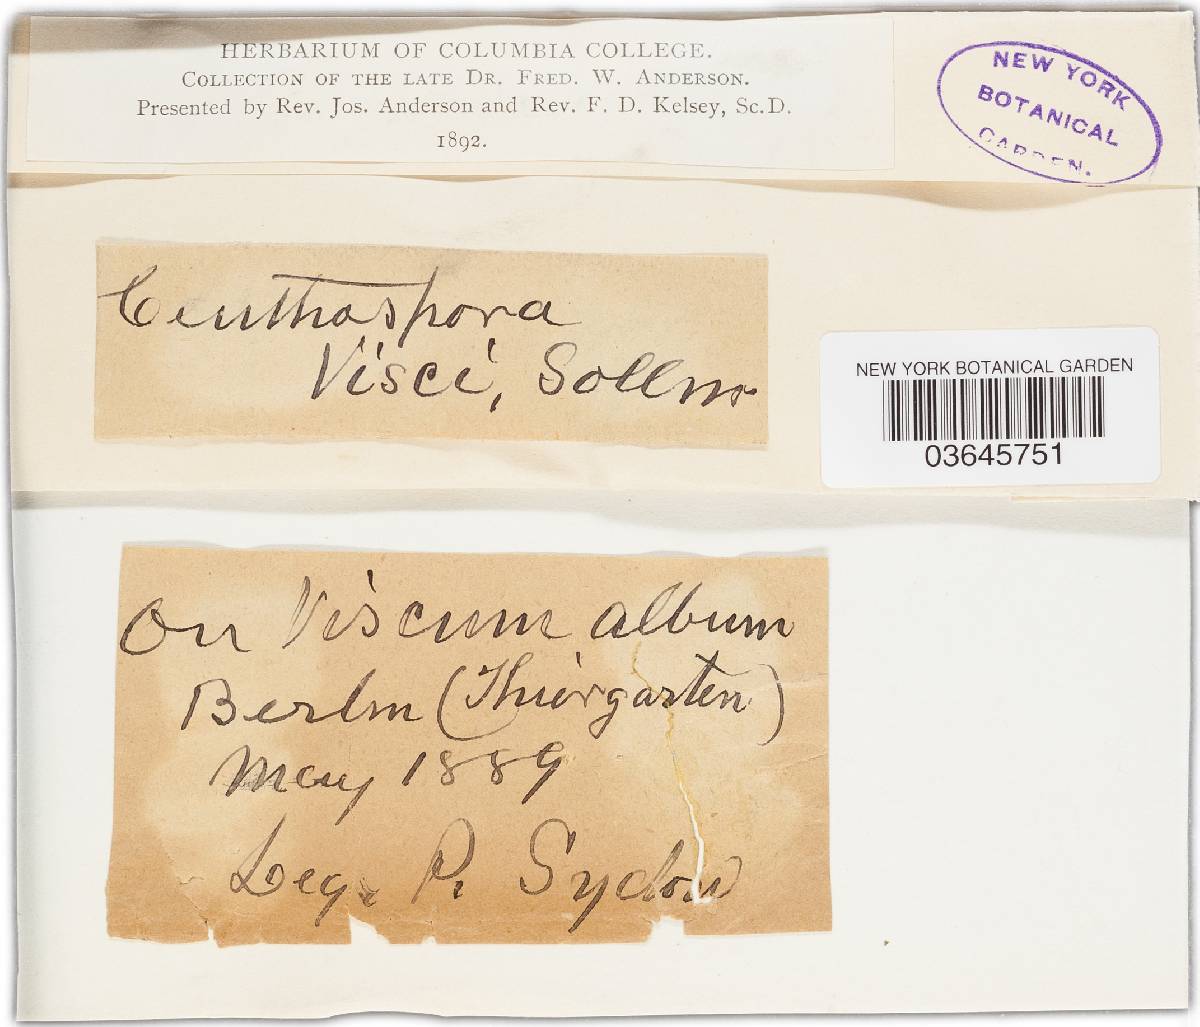 HERBARIUM OF COLUMBIA COLLEGE.
COLLECTION OF THE LATE DR. FRED. W. ANDERSON.
Presented by Rev. Jos. Anderson and Rev. F. D. Kelsey, Sc.D.
1892.
NEW YORK
BOTANICAL
GARDEN.
Ceuthospora
Visci, Sollm
NEW YORK BOTANICAL GARDEN
03645751
On Viscum album
Berlin (Thiergarten)
May 1889
Leg. P. Sydow